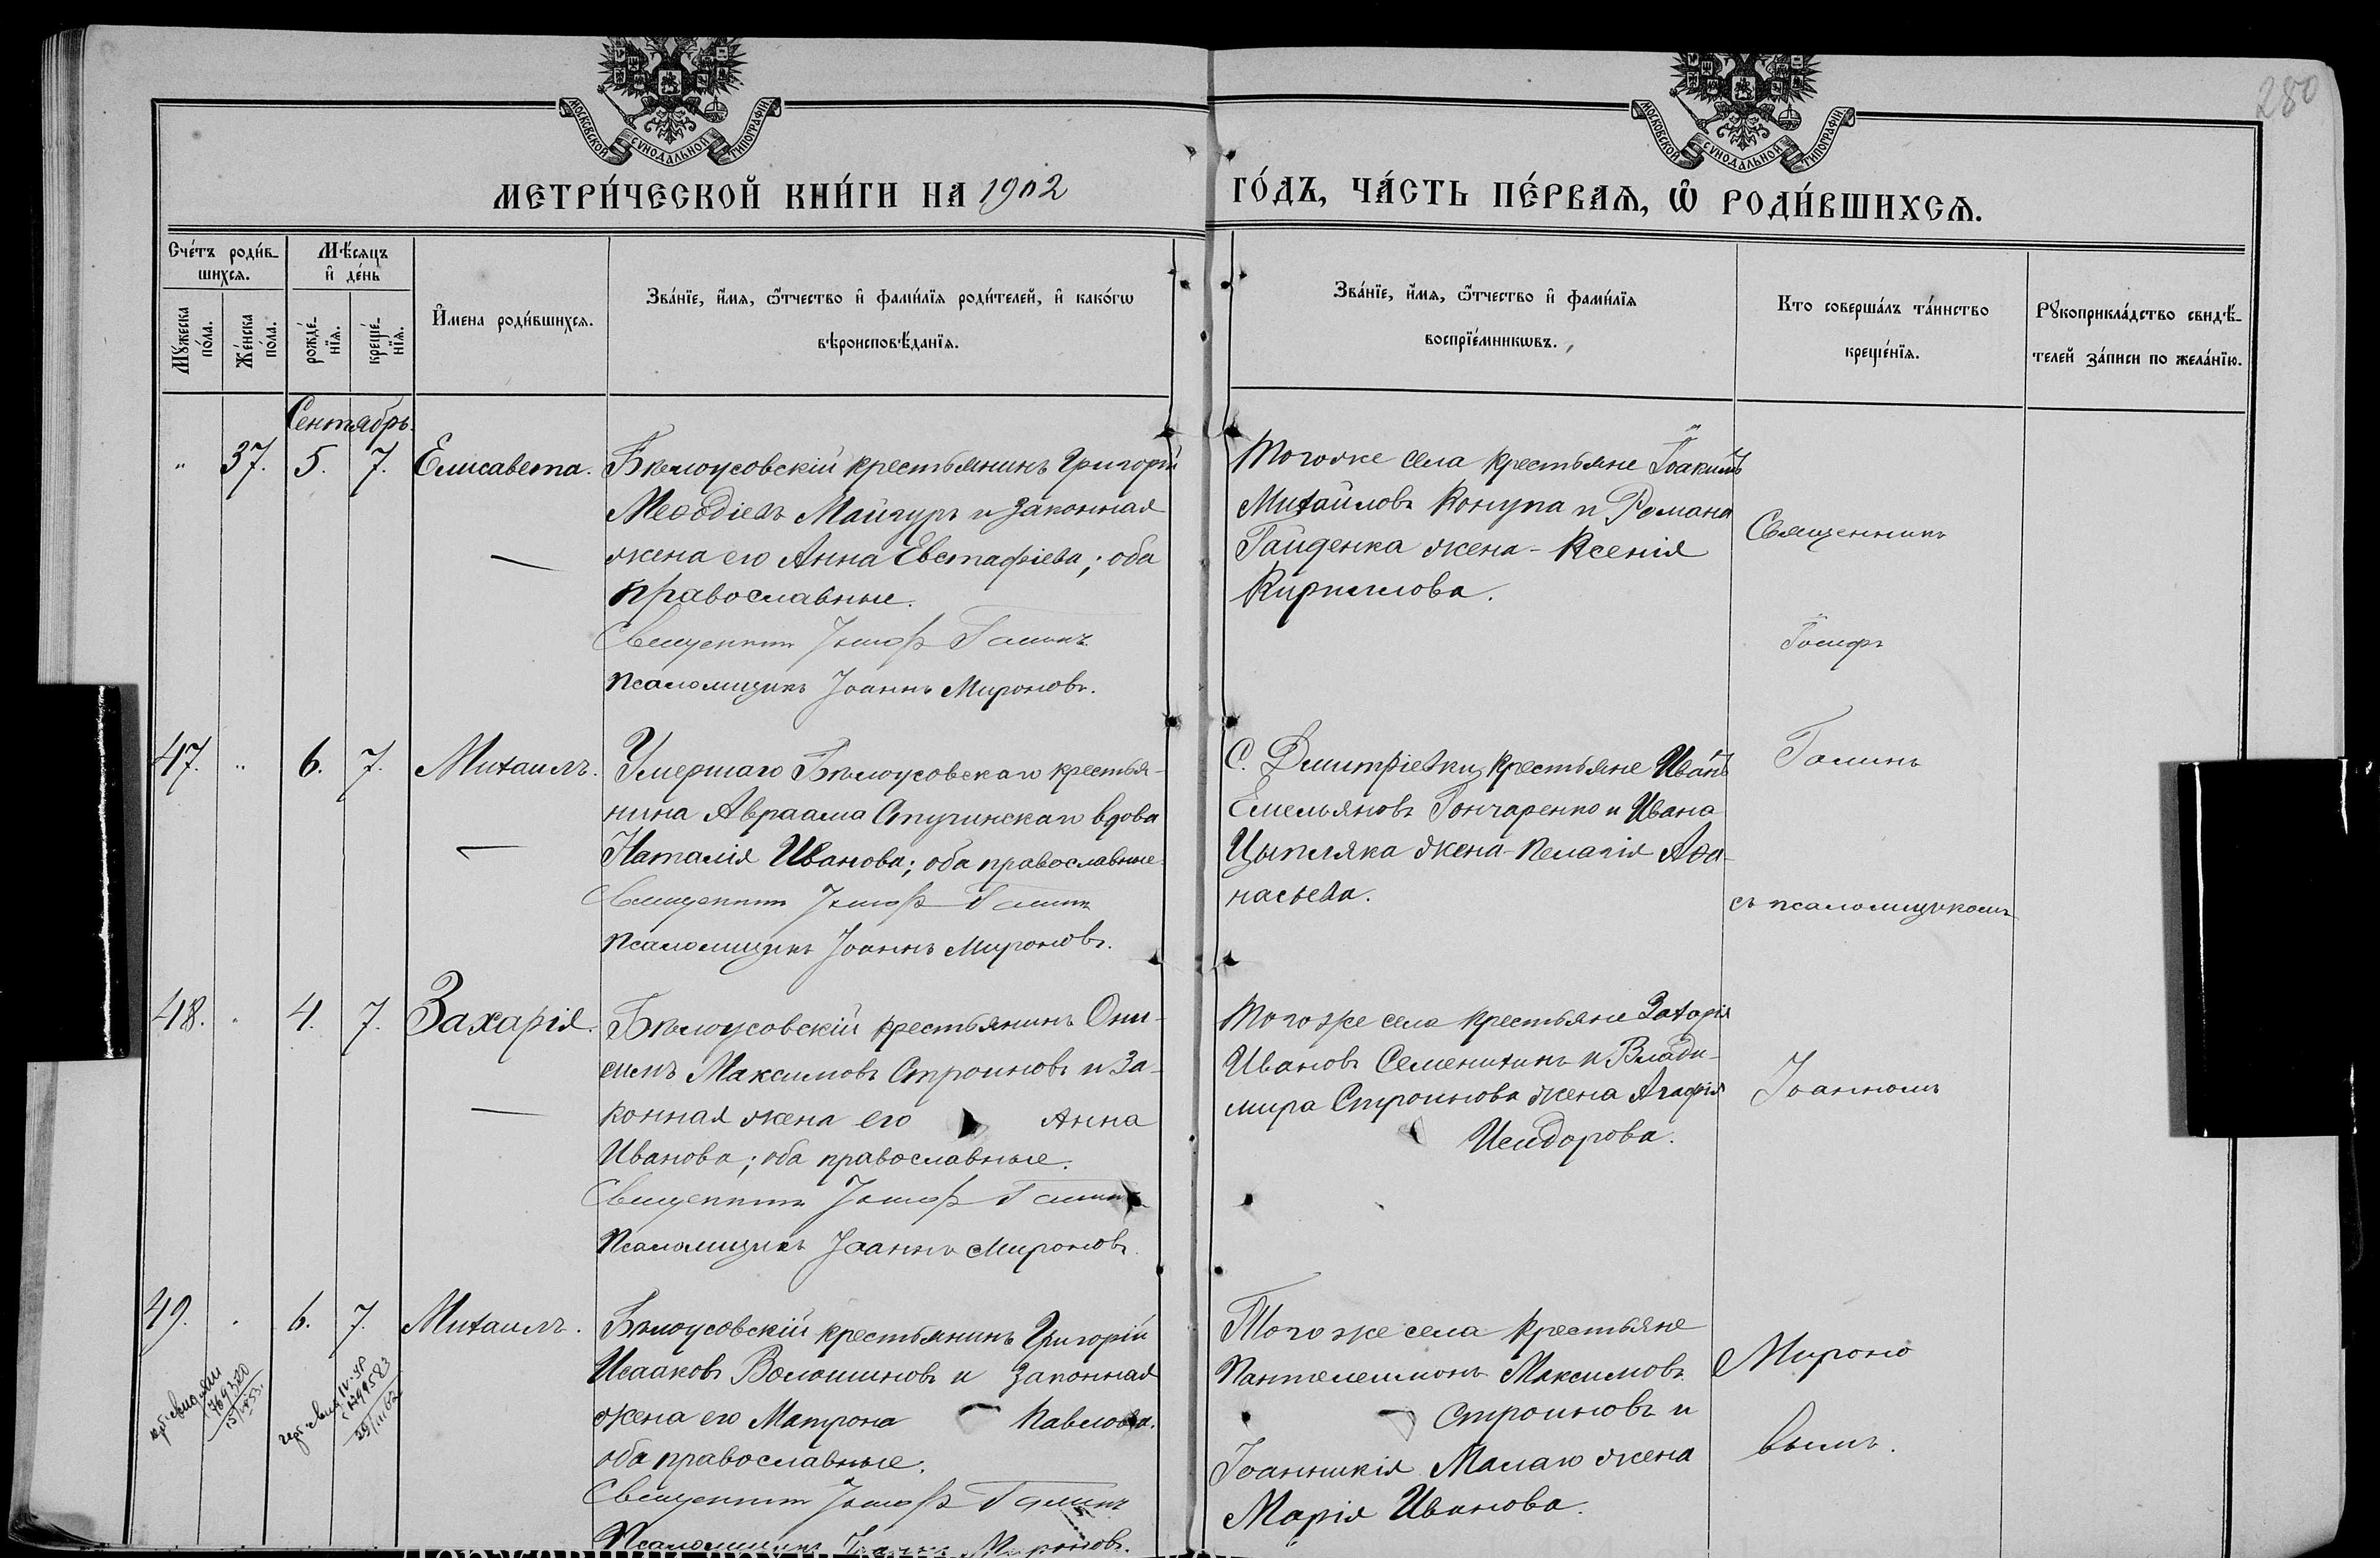 280
МОСКОВСКОЙ СѴНОДАЛЬНОЙ ТИПОГРАФІИ
МОСКОВСКОЙ СѴНОДАЛЬНОЙ ТИПОГРАФІИ
МЕТРИ́ЧЕСКОЙ КНИ́ГИ НА 1902
ГО́ДЪ, ЧА́СТЬ ПЕ́РВАЯ, Ѽ РОДИ́ВШИХСЯ.
Сче́тъ роди́в-
шихся.
Мѣ́сяцъ
и҆ де́нь
Мꙋ́жеска
по́ла.
Же́нска
по́ла.
рожде́-
нїѧ.
креще́-
нїѧ.
И҆мена роди́вшихся.
Зва́нїе, и҆́мѧ, ѻ҆́тчество и҆ фами́лїѧ роди́телей, и҆ како́гѡ
вѣроисповѣ́данїѧ.
Зва́нїе, и҆́мѧ, ѻ҆́тчество и҆ фами́лїѧ
воспрїе́мникѡвъ.
Кто соверша́лъ та́инство
креще́нїѧ.
Рꙋкоприкла́дство свидѣ́-
телей за́писи по жела́нїю.
Сентябрь.
" 37. 5. 7. Елисавета.
Бѣлоусовскій крестьянинъ Григорій
Меѳодіевъ Майгуръ и законная
жена его Анна Евстафіева; оба
православные.
Священникъ Іосифъ Галинъ
Псаломщикъ Іоаннъ Мироновъ.
Тогоже села крестьяне Іоакимъ
Михайловъ Конупа и Романа
Гайденка жена - Ксенія
Кириллова.
Священникъ
Іосифъ
47. " 6. 7. Михаилъ.
Умершаго Бѣлоусовскаго крестья-
нина Авраама Стугинскаго вдова
Наталія Иванова; оба православные.
Священникъ Іосифъ Галинъ
Псаломщикъ Іоаннъ Мироновъ.
С. Дмитріевки крестьяне Иванъ
Емельяновъ Гончаренко и Ивана
Цыпляка жена - Пелагія Аѳа-
насьева.
Галинъ
съ псаломщикомъ
48. " 4. 7. Захарія.
Бѣлоусовскій крестьянинъ Они-
симъ Максимовъ Строиновъ и за-
конная жена его Анна
Иванова; оба православные.
Священникъ Іосифъ Галинъ
Псаломщикъ Іоаннъ Мироновъ.
Того же села крестьяне Захарія
Ивановъ Семенихинъ и Влади-
мира Строинова жена Агафія
Исидорова.
Іоанномъ
49. " 6. 7. Михаилъ.
Бѣлоусовскій крестьянинъ Григорій
Исааковъ Волошиновъ и законная
жена его Матрона Павлова.
оба православные.
Священникъ Іосифъ Галинъ
Псаломщикъ Іоаннъ Мироновъ.
Того же села крестьяне
Пантелеимонъ Максимовъ
Строиновъ и
Іоанникія Малаго жена
Марія Иванова.
Мироно
вымъ.